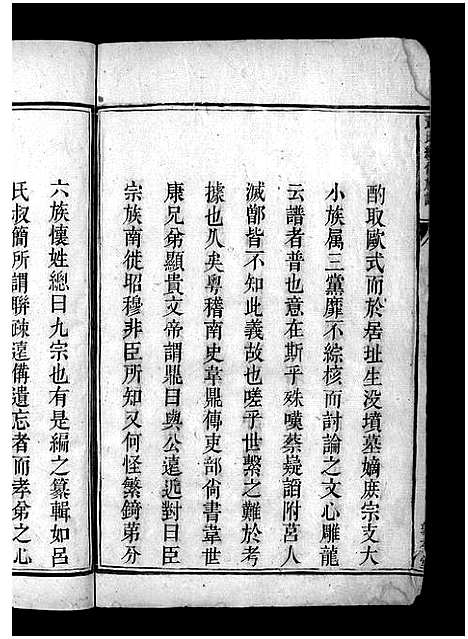 酌取歐式而於居址生没墳墓嫡庶宗支大
小族属三黨靡不綜核而討論之文心雕龍
云譜者普也意在斯乎殊嘆蔡嶷謟附莒人
滅鄫皆不知此義故也嗟乎世繫之難於考
據也乆矣粤稽南史韋鼎傳吏部尙書韋世
康兄弟顯貴文帝謂鼎曰與公遠近對曰臣
宗族南徙昭穆非臣所知又何怪繁錡苐分
六族懷姓總目九宗也有是編之纂輯如呂
氏叔簡所謂聯疎遠備遺忘者而孝弟之心